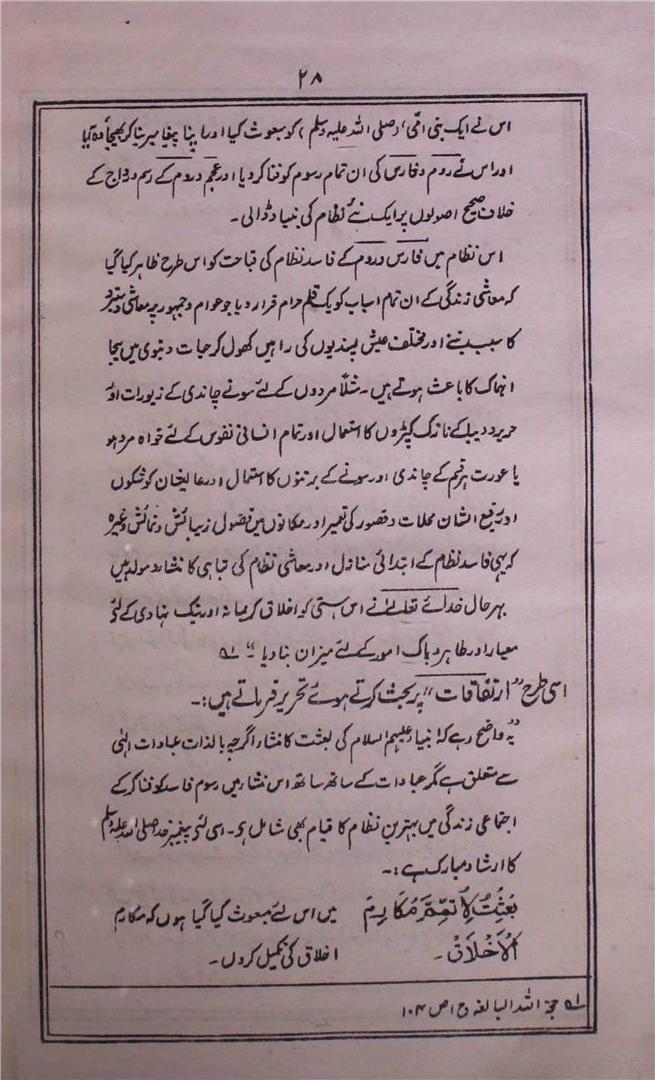 ۲۸
اس نے ایک نبی امّی (صلی اللہ علیہ وسلم) کو مبعوث کیا اور اپنا پیغامبر بنا کر بھیجا وہ آیا
اور اس نے روم و فارس کی ان تمام رسوم کو فنا کر دیا اور عجم و روم کے رسم و رواج کے
خلاف صحیح اصولوں پر ایک نئے نظام کی بنیاد ڈالی۔
اس نظام میں فارس و روم کے فاسد نظام کی قباحت کو اس طرح ظاہر کیا گیا
کہ معاشی زندگی کے ان تمام اسباب کو یک قلم حرام قرار دیا جو عوام و جمہور پر معاشی دستبرد
کا سبب بنتے اور مختلف عیش پسندیوں کی راہیں کھول کر حیات دنیوی میں بیجا
انہماک کا باعث ہوتے ہیں۔ مثلاً مردوں کے لئے سونے چاندی کے زیورات اور
حریر و دیبا کے نازک کپڑوں کا استعمال اور تمام انسانی نفوس کے لئے خواہ مرد ہو
یا عورت ہر قسم کے چاندی اور سونے کے برتنوں کا استعمال اور عالیشان کوشکوں
اور رفیع الشان محلات و قصور کی تعمیر اور مکانوں میں فضول زیبائش و نمائش وغیرہ
کہ یہی فاسد نظام کے ابتدائی منازل اور معاشی نظام کی تباہی کا منشاء و مولد ہیں
بہر حال خدائے تعالےٰ نے اس ہستی کو اخلاق کریمانہ اور نیک نہادی کے لئے
معیار اور طاہر و پاک امور کے لئے میزان بنا دیا" ؎۱
اسی طرح "ارتفاقات" پر بحث کرتے ہوئے تحریر فرماتے ہیں:۔
"یہ واضح رہے کہ انبیاء علیہم السلام کی بعثت کا منشاء اگرچہ بالذات عبادات الٰہی
سے متعلق ہے مگر عبادات کے ساتھ ساتھ اس منشاء میں رسوم فاسد کو فنا کر کے
اجتماعی زندگی میں بہترین نظام کا قیام بھی شامل ہے۔ اسی لئے پیغمبر خدا صلی اللہ علیہ وسلم
کا ارشاد مبارک ہے:۔
بُعِثْتُ لِاُتَمِّمَ مَکَارِمَ میں اس لئے مبعوث کیا گیا ہوں کہ مکارم
الْاَخْلَاقِ۔ اخلاق کی تکمیل کروں۔
؎۱ حجۃ اللہ البالغہ ج ۱ ص ۱۰۴